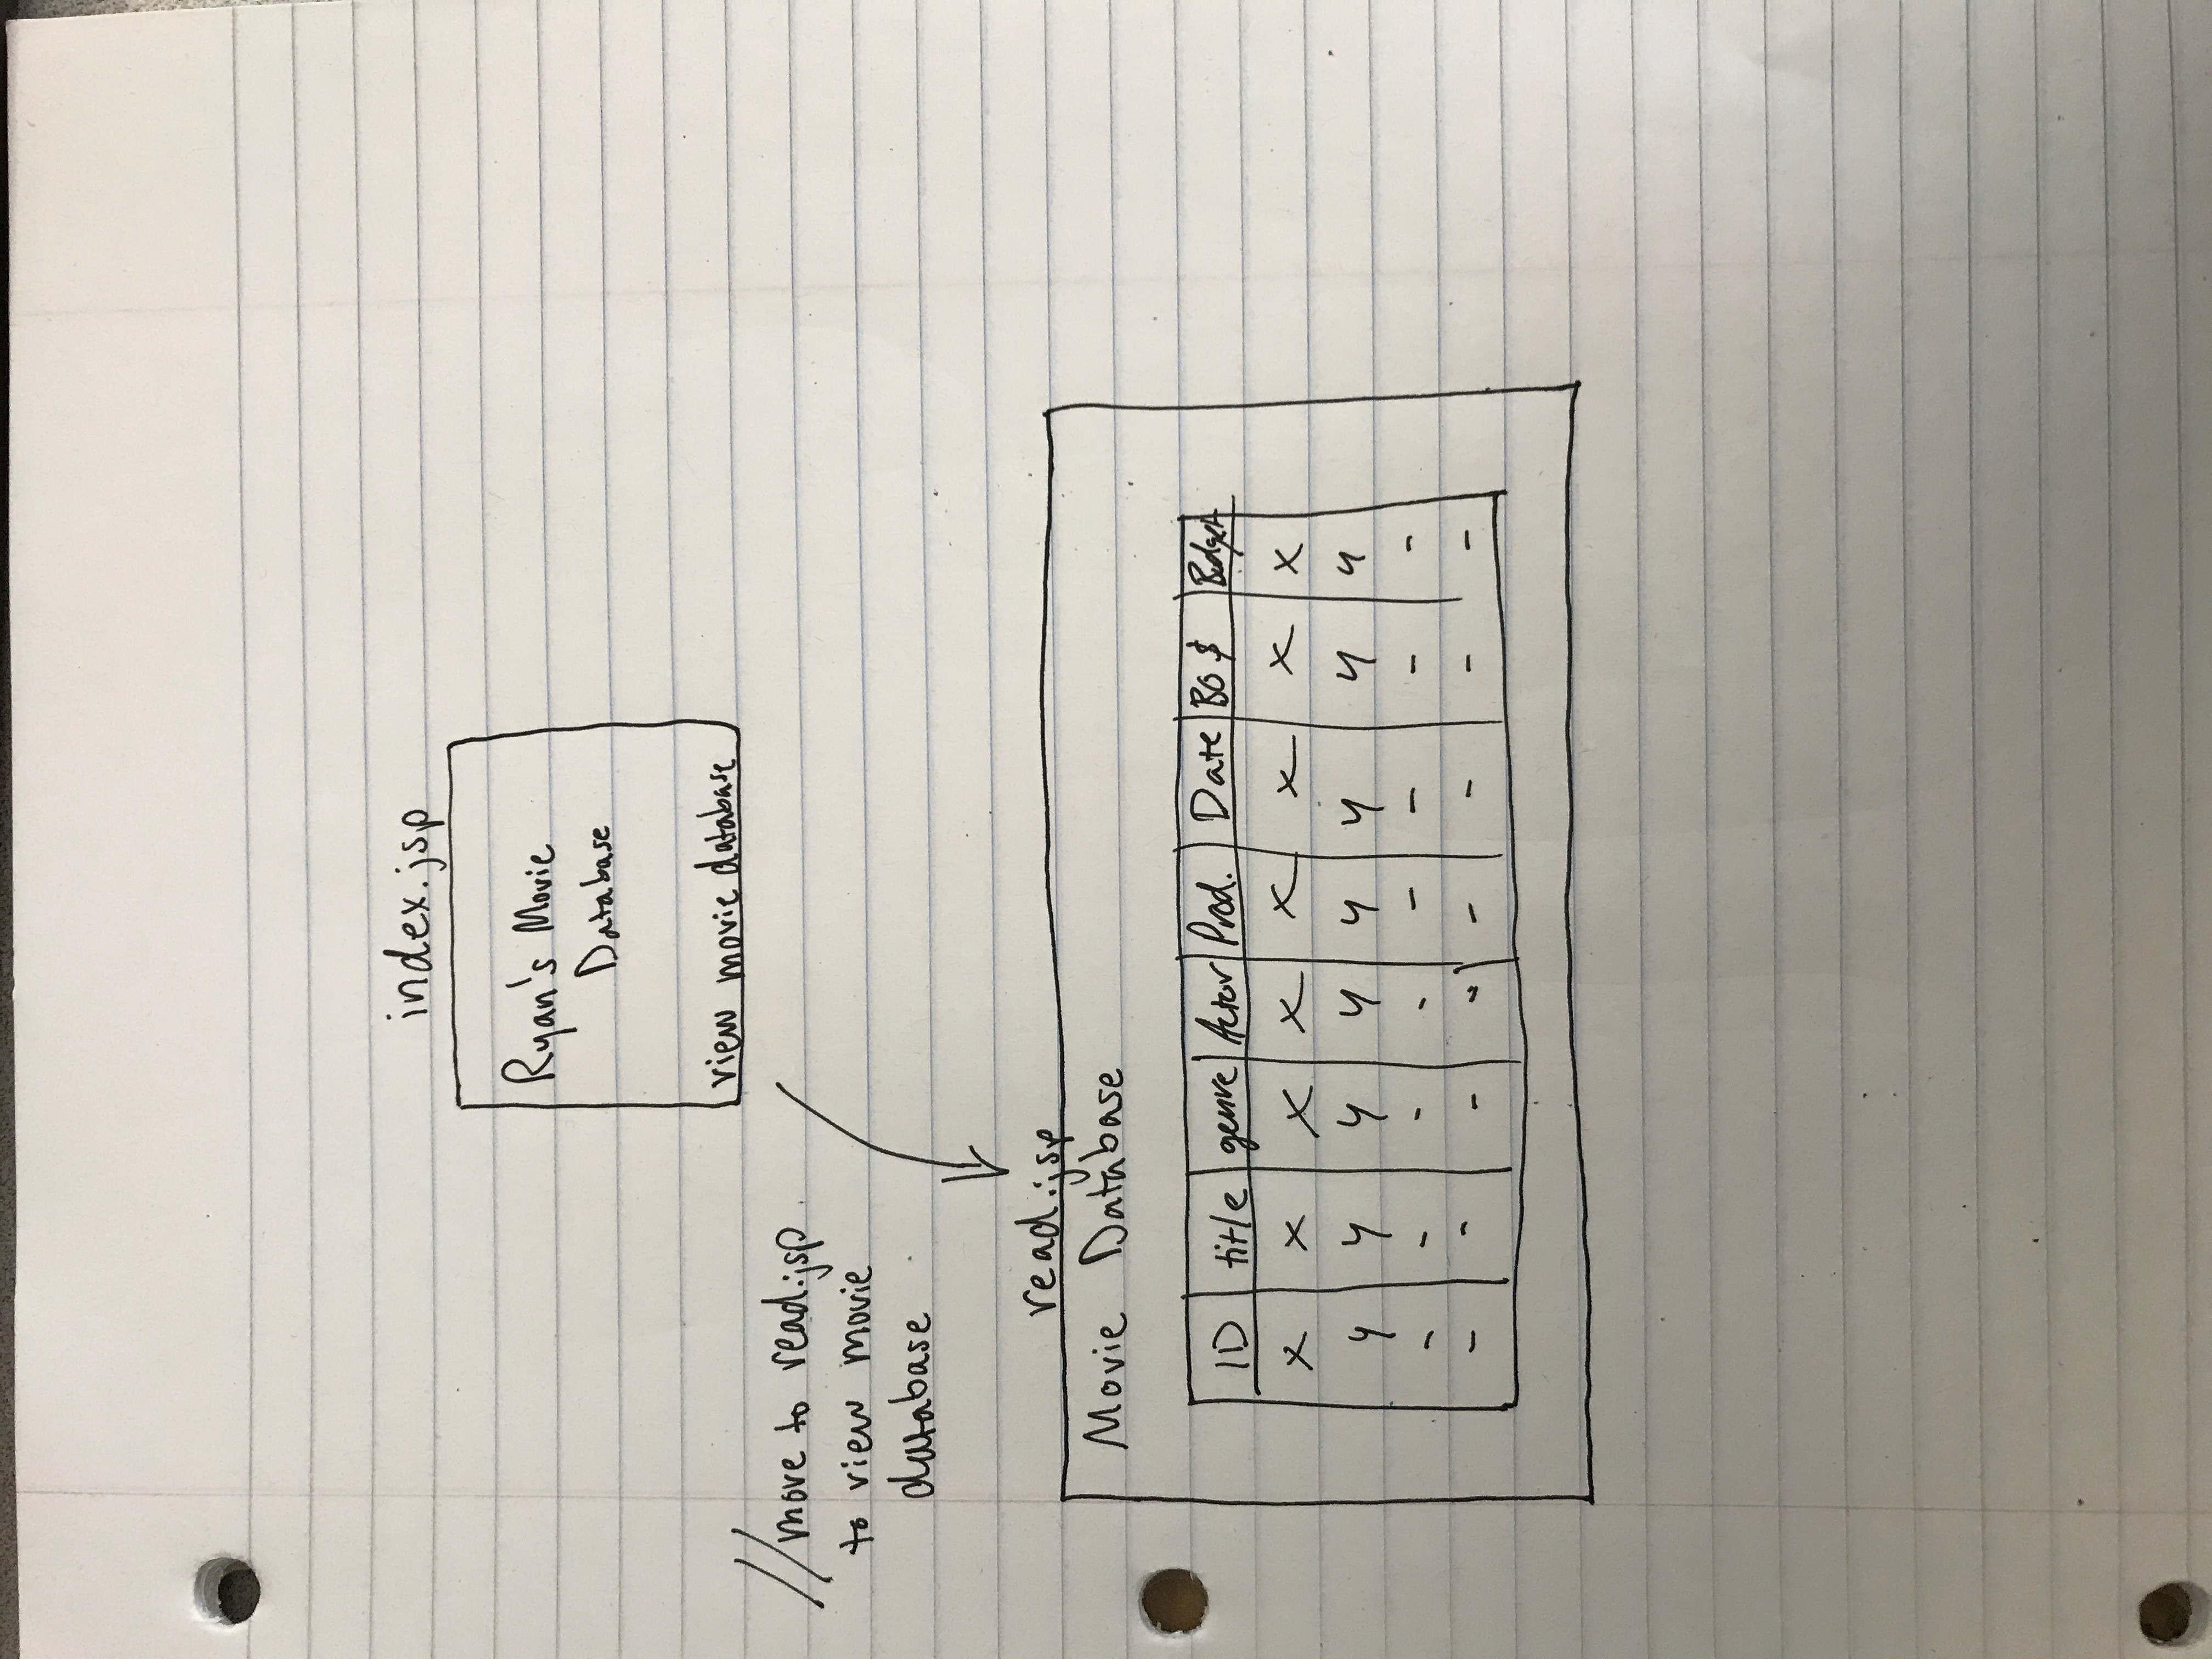 index.jsp
Ryan's Movie
Database
view movie database
//move to read.jsp
to view movie
database
read.jsp
Movie Database
ID title genre Actor Prod. Date BO $ Budget
x x x x x x x x
y y y y y y y y
- - - - - - - -
- - - - - - - -